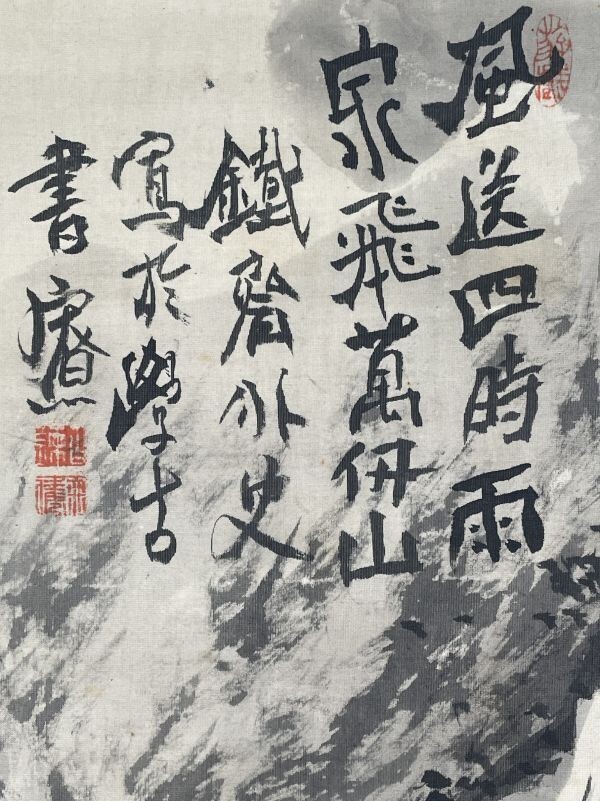 風送四時雨
泉飛萬仭山
鐵斎外史
寫於學古
書寮